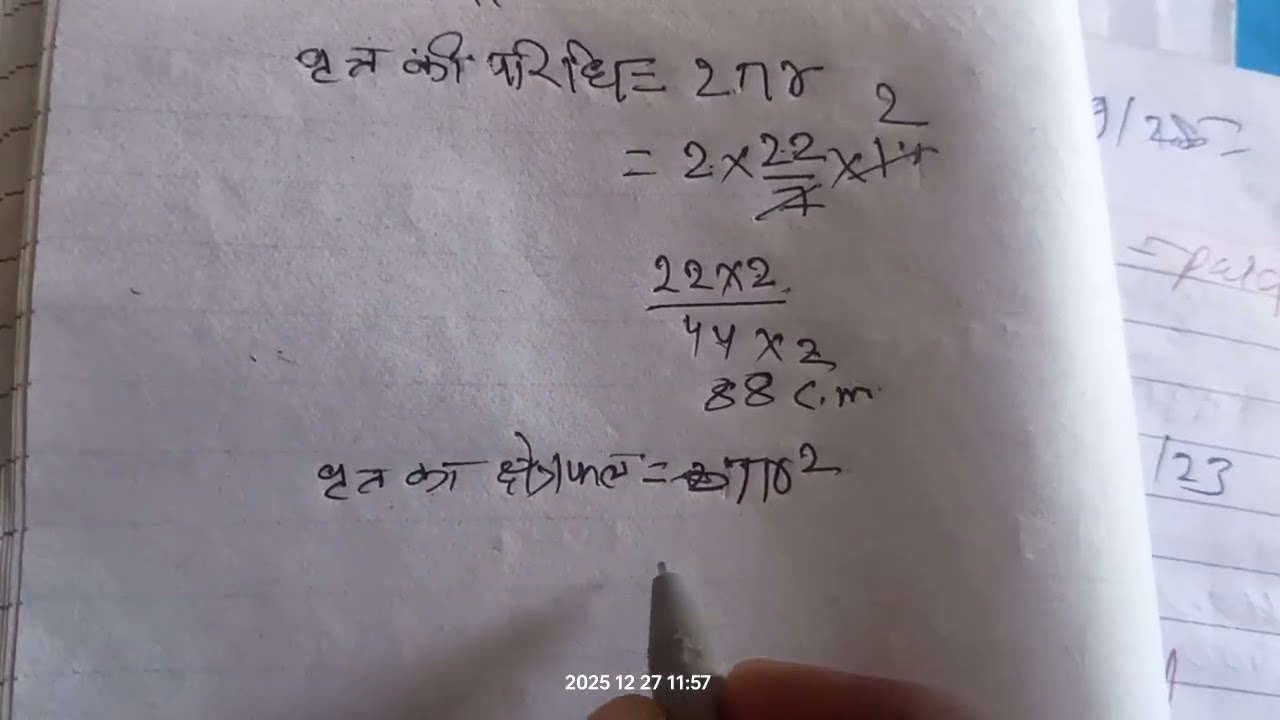 वृत्त की परिधि = 2πr
2
= 2 × 22/7 × 14
22×2
44 × 2
88 c.m.
वृत्त का क्षेत्रफल = πr²
/23
2025 12 27 11:57